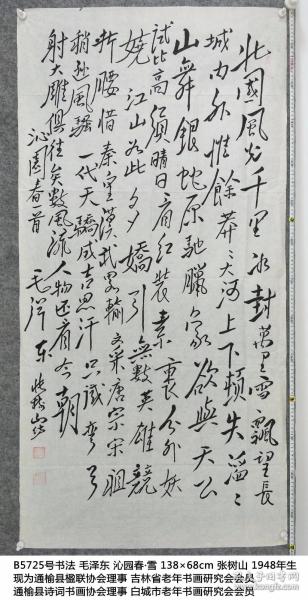 北國風光千里冰封萬里雪飄望長
城内外惟餘莽莽大河上下頓失滔滔
山舞銀蛇原馳臘象欲與天公
試比高須晴日看红装素裹分外妖
嬈江山如此多嬌引無數英雄競
折腰惜秦皇漢武畧輸文采唐宗宋祖
稍遜風騷一代天驕成吉思汗只識彎弓
射大雕俱往矣數風流人物还看今朝
沁園春首 毛泽东 张树山书
B5725号书法 毛泽东 沁园春·雪 138×68cm 张树山 1948年生
现为通榆县楹联协会理事 吉林省老年书画研究会会员
通榆县诗词书画协会理事 白城市老年书画研究会会员